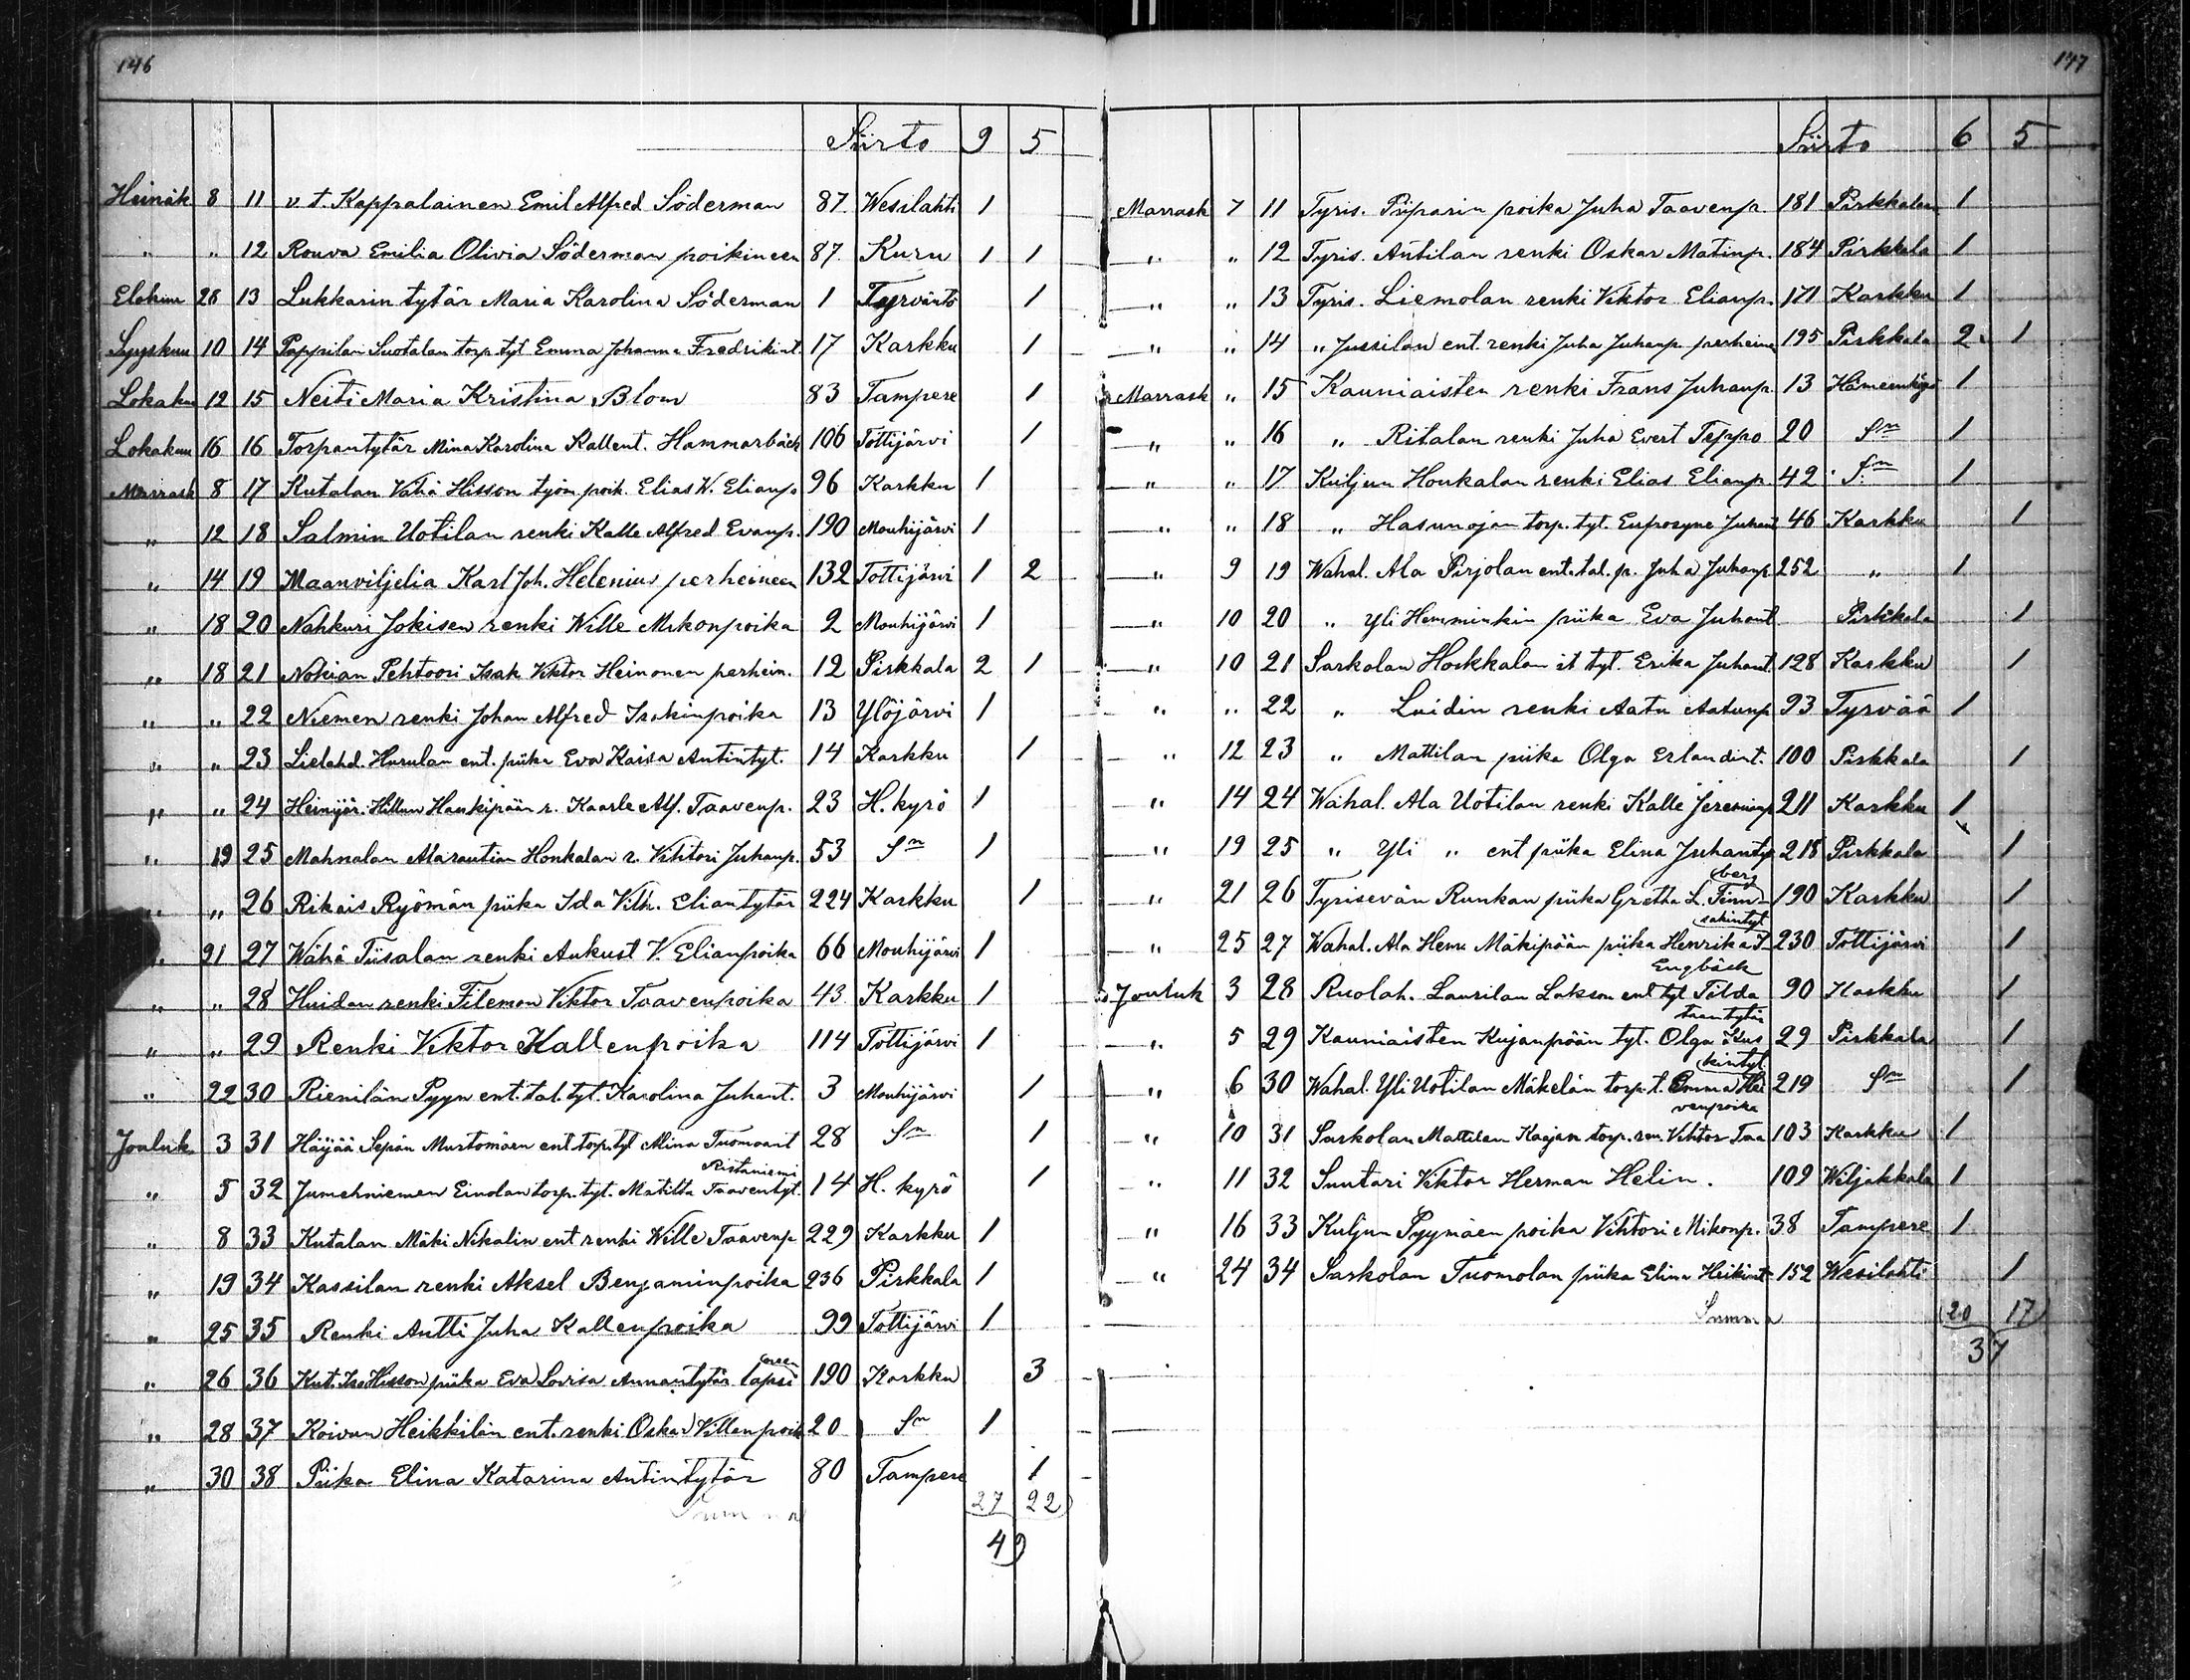 146
Siirto 9 5
Heinäk 8 11 v. t. Kappalainen Emil Alfred Söderman 87. Wesilahti 1
" " 12 Rouva Emilia Olivia Söderman poikineen 87. Kuru 1 1
Elokuu 28 13 Lukkarin tytär Maria Karolina Söderman 1 Tyrväntö 1
Syyskuu 10 14 Pappilan Suotalan torp. tyt Emma Johanna Fredrikint. 17 Karkku 1
Lokakuu 12 15 Neiti Maria Kristina Blom 83 Tampere 1
Lokakuu 16 16 Torpantytär Mina Karolina Kallent. Hammarbäck 106 Tottijärvi 1
Marrask 8 17 Kutalan Vähä Hisson työm. poik. Elias W. Elianp. 96 Karkku 1
" 12 18 Salmin Uotilan renki Kalle Alfred Evanp. 190 Mouhijärvi 1
" 14 19 Maanviljelia Karl Joh. Helenius perheineen 132 Tottijärvi 1 2
" 18 20 Nahkuri Jokisen renki Wille Mikonpoika 2 Mouhijärvi 1
" 18 21 Nokian Pehtoori Isak Viktor Heinonen perhein. 12 Pirkkala 2 1
" " 22 Niemen renki Johan Alfred Isakinpoika 13 Ylöjärvi 1
" " 23 Lielahd. Hurulan ent. piika Eva Kaisa Antintyt. 14 Karkku 1
" " 24 Heinijär. Hillun Haukipään r. Kaarle Alf. Taavenp. 23 H. kyrö 1
" 19 25 Mahnalan Alarautian Honkalan r. Vihtori Juhanp. 53 Sn 1
" " 26 Rikais Ryömän piika Ida Vilh. Eliantytär 224 Karkku 1
" 21 27 Wähä Tiisalan renki Aukust V. Elianpoika 66 Mouhijärvi 1
" " 28 Huidan renki Filemon Viktor Taavenpoika 43 Karkku 1
" " 29 Renki Viktor Kallenpoika 114 Tottijärvi 1
" 22 30 Rienilän Pyyn ent. tal. tyt. Karolina Juhant. 3 Mouhijärvi 1
Jouluk 3 31 Häijää Sepän Murtomäen ent torp. tyt Mina Tuomaant 28 Sn 1
Ristaniemi
" 5 32 Jumehniemen Einolan torp. tyt. Matilta Taaventyt. 14 H. kyrö 1
" 8 33 Kutalan Mäki Nikalin ent renki Wille Taavenp 229 Karkku 1
" 19 34 Kassilan renki Aksel Benjaminpoika 236 Pirkkala 1
" 25 35 Renki Antti Juha Kallenpoika 99 Tottijärvi 1
" 26 36 Kut. Iso Hisson piika Eva Lovisa Annantytär lapsi 190 Karkku 3
" 28 37 Koivun Heikkilän ent. renki Oskar Villenpoik 20 Sn 1
" 30 38 Piika Elina Katarina Antintytär 80 Tampere 1
Summa 27 22
49
147
Siirto 6 5
Marrask 7 11 Tyris. Piiparin poika Juha Taavenp. 181 Pirkkalan 1
" " 12 Tyris. Anttilan renki Oskar Matinp. 184 Pirkkala 1
" " 13 Tyris. Liemolan renki Viktor Elianp. 171 Karkku 1
" " 14 " Jussilan ent. renki Juha Juhanp perheine 195 Pirkkala 2 1
Marrask " 15 Kauniaisten renki Frans Juhanp. 13 Hämeenkyrö 1
" " 16 " Ritalan renki Juha Evert Teppo 20 Sn 1
" " 17 Kuljun Honkalan renki Elias Elianp. 42 Sn 1
" " 18 " Hasunojan torp. tyt. Euprosyne Juhant 46 Karkku 1
" 9 19 Wahal. Ala Pirjolan ent. tal. p. Juha Juhanp 252 " 1
" 10 20 " Yli Hemminkin piika Eva Juhant Pirkkala 1
" 10 21 Sarkolan Hoikkalan it tyt. Erika Juhant. 128 Karkku 1
" " 22 " Luidin renki Aatu Aatunp 93 Tyrvää 1
" 12 23 " Mattilan piika Olga Erlandint. 100 Pirkkala 1
" 14 24 Wahal. Ala Uotilan renki Kalle Jeremianp 211 Karkku 1
" 19 25 " Yli " ent piika Elina Juhantyt 218 Pirkkala 1
berg
" 21 26 Tyrisevän Runkan piika Gretha L. Finn- 190 Karkku 1
sakintyt
" 25 27 Wahal. Ala Hemi Mäkipään piika Henrika I- 230 Tottijärvi 1
Engbäck
Jouluk 3 28 Ruolah. Laurilan Lakson ent tyt Tilda 90 Karkku 1
taantytär
" 5 29 Kauniaisten Kujanpään tyt. Olga Kus 29 Pirkkala 1
kintyt
" 6 30 Wahal. Yli Uotilan Mäkelän torp. t. Emma Hei 219 Sn 1
venpoika
" 10 31 Sarkolan Mattilan Kaajan torp. ren. Vihtor Taa 103 Karkku 1
" 11 32 Suutari Viktor Herman Helin. 109 Wiljakkala 1
" 16 33 Kuljun Pyymäen poika Vihtori Mikonp. 38 Tampere 1
" 24 34 Sarkolan Tuomolan piika Elina Heikint 152 Wesilahti 1
Summa 20 17
37